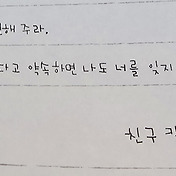 해 주라.
다고 약속하면 나도 너를 잊지
친구